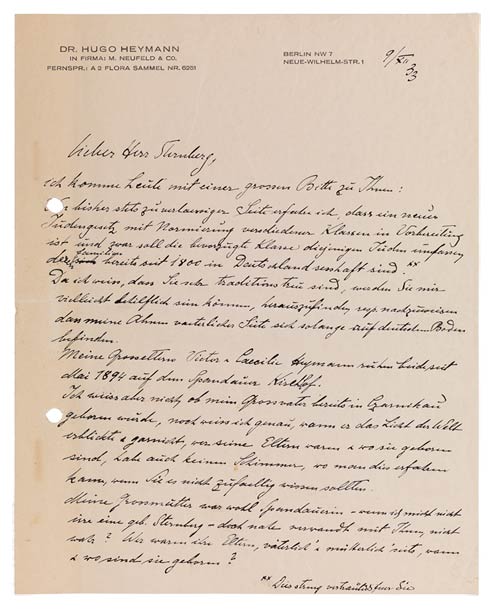 DR. HUGO HEYMANN
IN FIRMA: M. NEUFELD & CO.
FERNSPR.: A 2 FLORA SAMMEL NR. 6251
BERLIN NW 7
NEUE-WILHELM-STR. 1
9/XII 33
Lieber Herr Sternberg,
ich komme heute mit einer grossen Bitte zu Ihnen:
Von bisher stets zuverlaessiger Seite erfahre ich, dass ein neuer
Judengesetz mit Normierung verschiedener Klassen in Vorbereitung
ist und zwar soll die bevorzugte Klasse diejenigen Juden umfassen
deren Familien bereits seit 1800 in Deutschland sesshaft sind. **
Da ich weiss, dass Sie sehr traditionstreu sind, werden Sie mir
vielleicht behilflich sein koennen, herauszufinden resp. nachzuweisen
dass meine Ahnen vaeterlicher Seite sich solange auf deutschem Boden
befinden.
Meine Grosseltern Victor & Caecilie Heymann ruhen beide seit
Mai 1894 auf dem Spandauer Kirchhof.
Ich weiss aber nicht, ob mein Grossvater bereits in Czarnikau
geboren wurde, noch weiss ich genau, wann er das Licht der Welt
erblickte & garnicht, wer seine Eltern waren & wo sie geboren
sind, habe auch keinen Schimmer, wo man dies erfahren
kann, wenn Sie es nicht zufaellig wissen sollten.
Meine Grossmutter war wohl Spandauerin - wenn ich mich nicht
irre eine geb. Sternberg - doch nahe verwandt mit Ihnen, nicht
wahr? Wer waren ihre Eltern, väterlich' & mütterlich' seits, wann
& wo sind sie geboren?
** Dies streng vertraulich fuer Sie